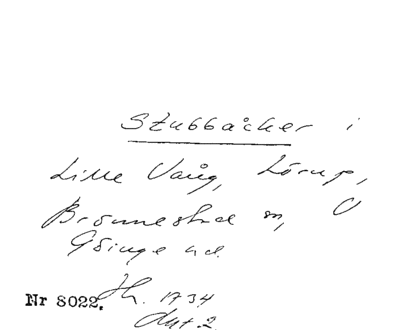 Stubbåcker i
Lille Vång, Lörup,
Brönnestad sn,
Göinge hd.
Nr 8022. Jh. 1734
Aug. 2